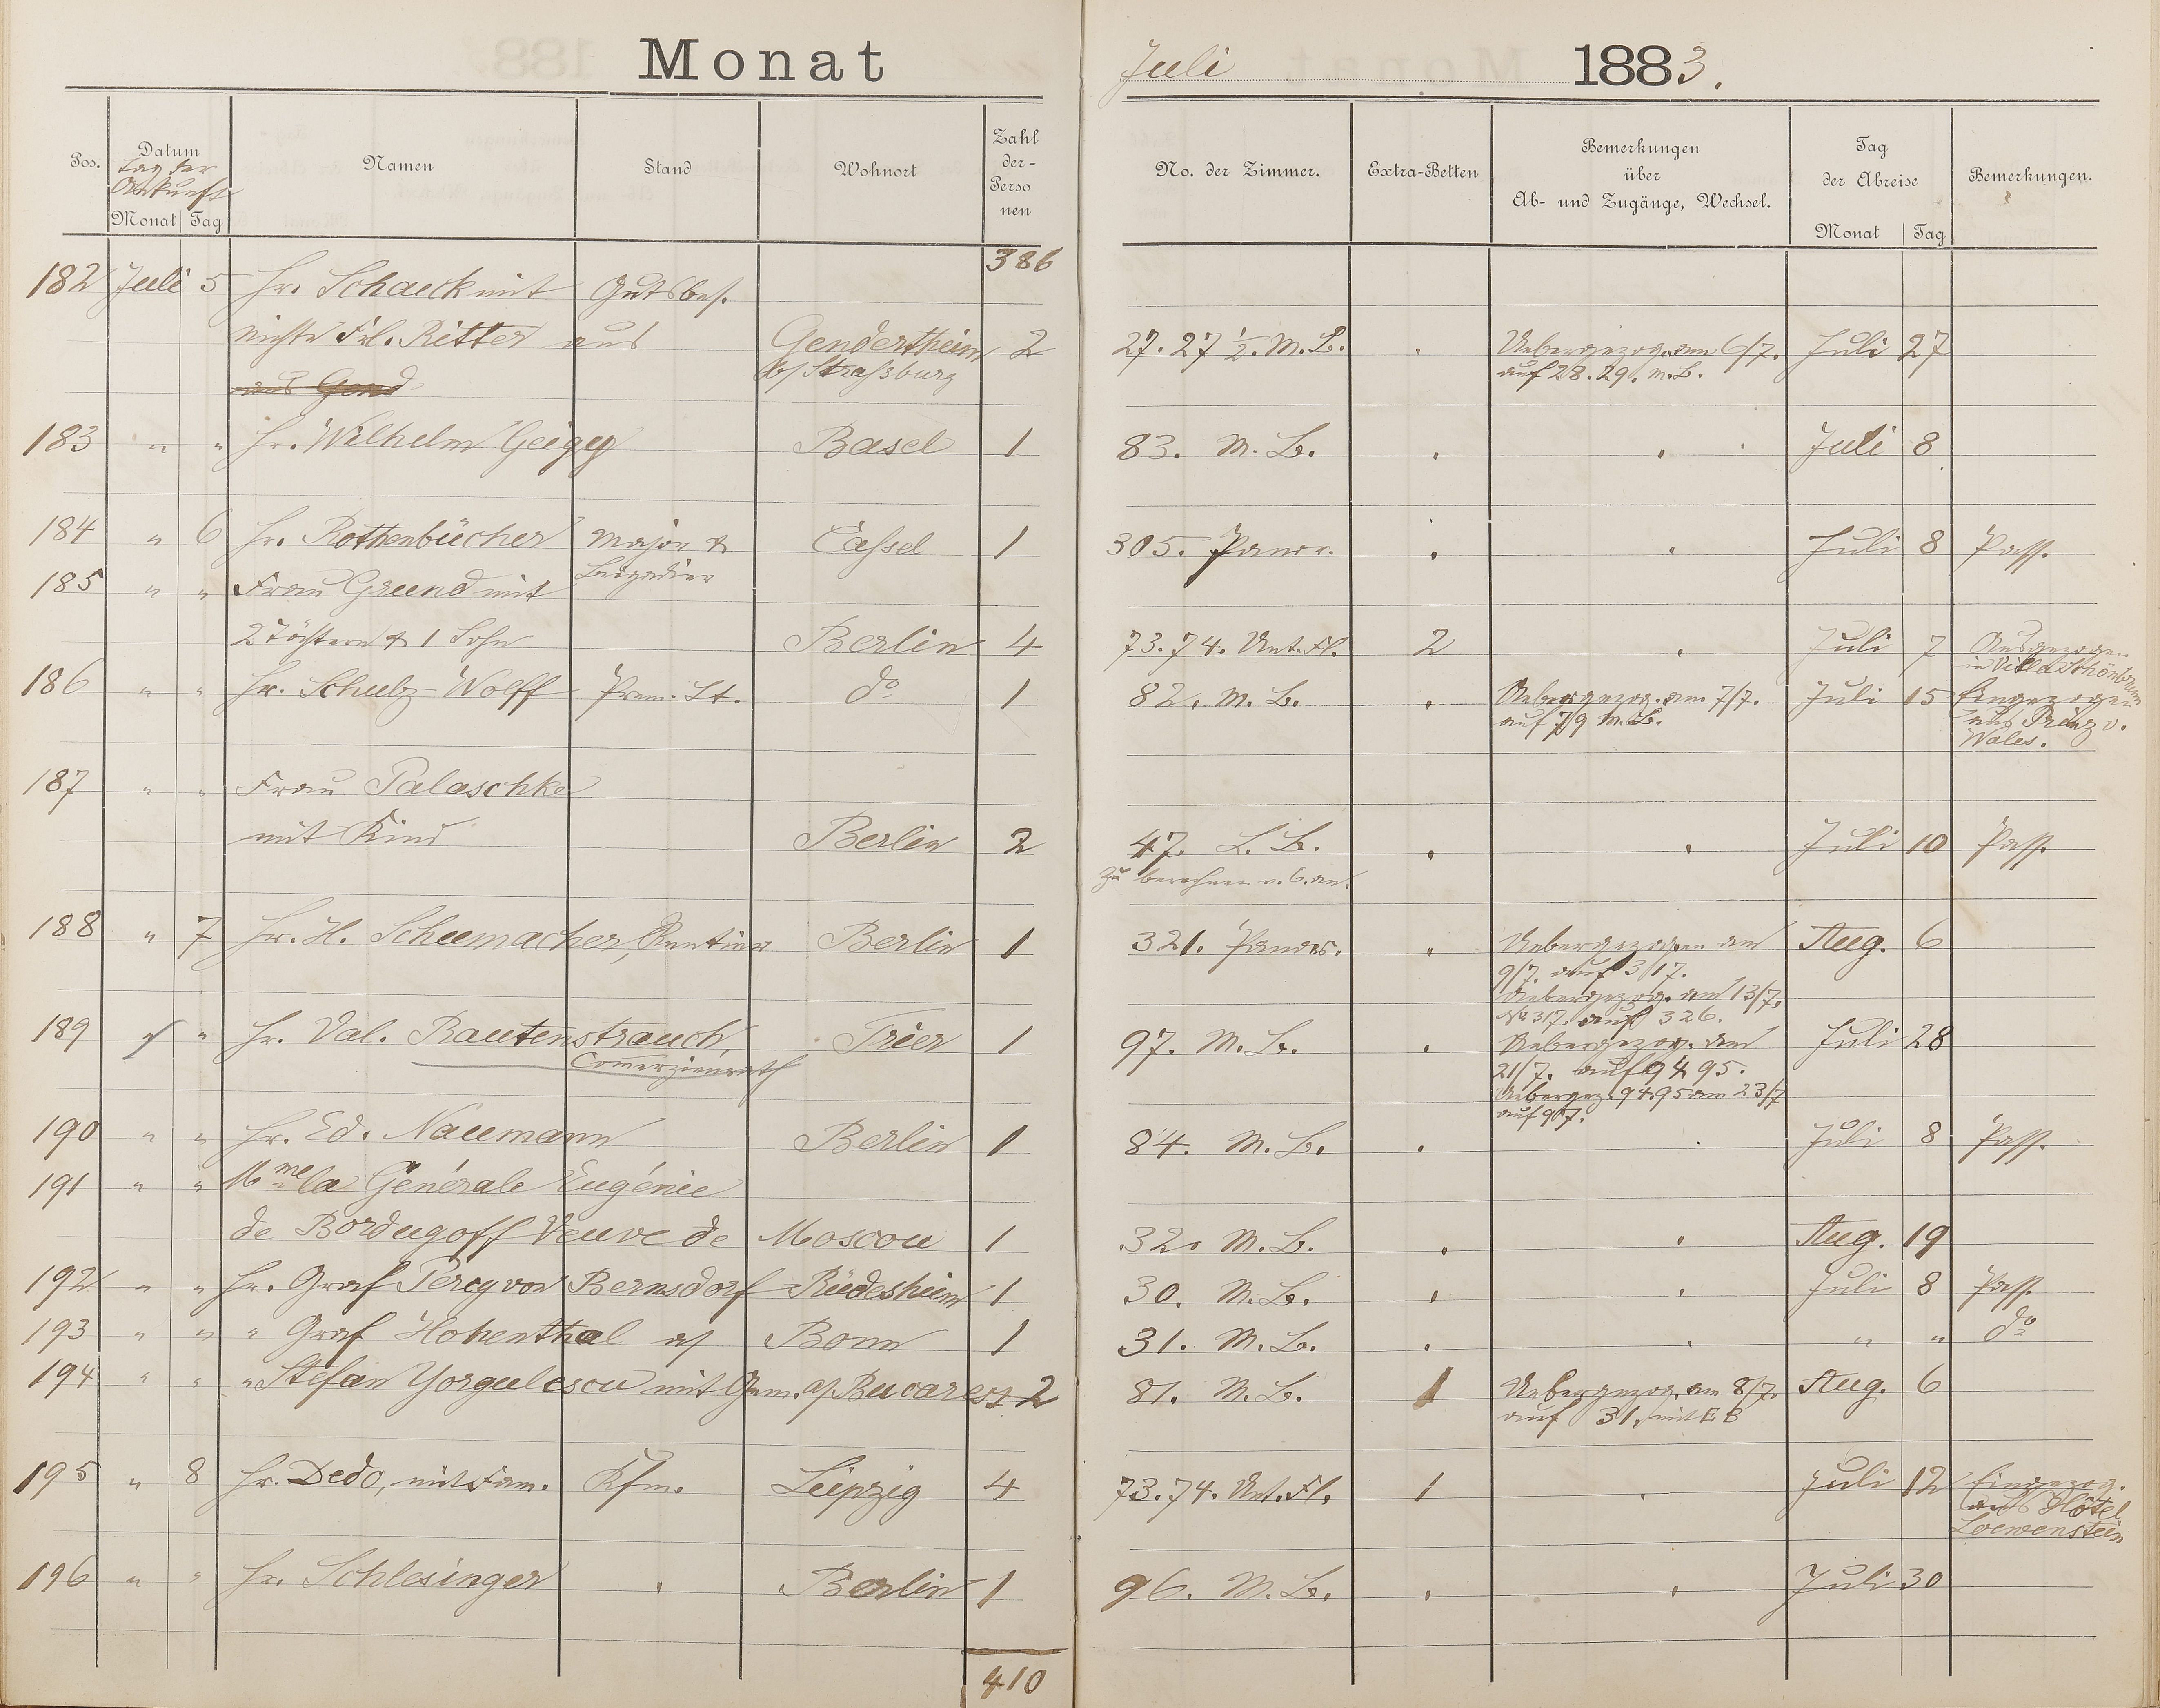 Monat Juli 1883.
Pos. Datum Tag der Ankunft Monat Tag Namen Stand Wohnort Zahl der- Perso nen No. der Zimmer. Extra-Betten Bemerkungen über Ab- und Zugänge, Wechsel. Tag der Abreise Monat Tag Bemerkungen.
386
182 Juli 5 Hr. Schauck mit Gutsbes.
Nichte Frl. Ritter aus Gendertheim 2 27. 27 1/2. M. B. . Uebergezog. am 6/7. Juli 27
aus Gend b/ Straßburg auf 28. 29. M. B.
183 " " Hr. Wilhelm Geigy Basel 1 83. M. B. . . Juli 8
184 " 6 Hr. Rothenbücher Major & Cassel 1 305. Panor. . . Juli 8 Pass.
Brigadier
185 " " Frau Grund mit
2 Töchtern & 1 Sohn Berlin 4 73. 74. Unt. Fl. 2 . Juli 7 Ausgezogen
in Villa Schönbrunn
186 " " Hr. Schulz-Wolff Prem. Lt. do 1 82. M. B. . Uebergezog. am 7/7. Juli 15 Eingezogen
auf 79 M. B. aus Prinz v.
Wales.
187 " " Frau Palaschke
mit Kind Berlin 2 47. L. B. . . Juli 10 Pass.
zu berechnen v. 6. an.
188 " 7 Hr. H. Schumacher, Rentier Berlin 1 321. Panor. . Uebergezogen am Aug. 6
9/7. auf 317.
Uebergezog. am 13/7.
No 317. auf 326.
189 " " Hr. Val. Rautenstrauch, Trier 1 97. M. B. . Uebergezog. am Juli 28
Comerzienrath 21/7. auf 94 95.
Uebergez. 94 95 am 23/7
auf 97.
190 " " Hr. Ed. Naumann Berlin 1 84. M. B. . . Juli 8 Pass.
191 " " Mme la Générale Eugénie
de Bordugoff Veuve de Moscou 1 32. M. B. . . Aug. 19
192 " " Hr. Graf Percy von Bernsdorf Rüdesheim 1 30. M. B. . . Juli 8 Pass.
193 " " " Graf Hohenthal a/ Bonn 1 31. M. B. . . " " do
194 " " " Stefan Yorgulescu mit Gem. a/ Bucarest 2 81. M. B. 1 Uebergezog. am 8/7. Aug. 6
auf 31. mit E. B
195 " 8 Hr. Dedo, mit Fam. Kfm. Leipzig 4 73. 74. Unt. Fl. 1 . Juli 12 Eingezog.
aus Hôtel
Loewenstein
196 " " Hr. Schlesinger . Berlin 1 96. M. B. . . Juli 30
410